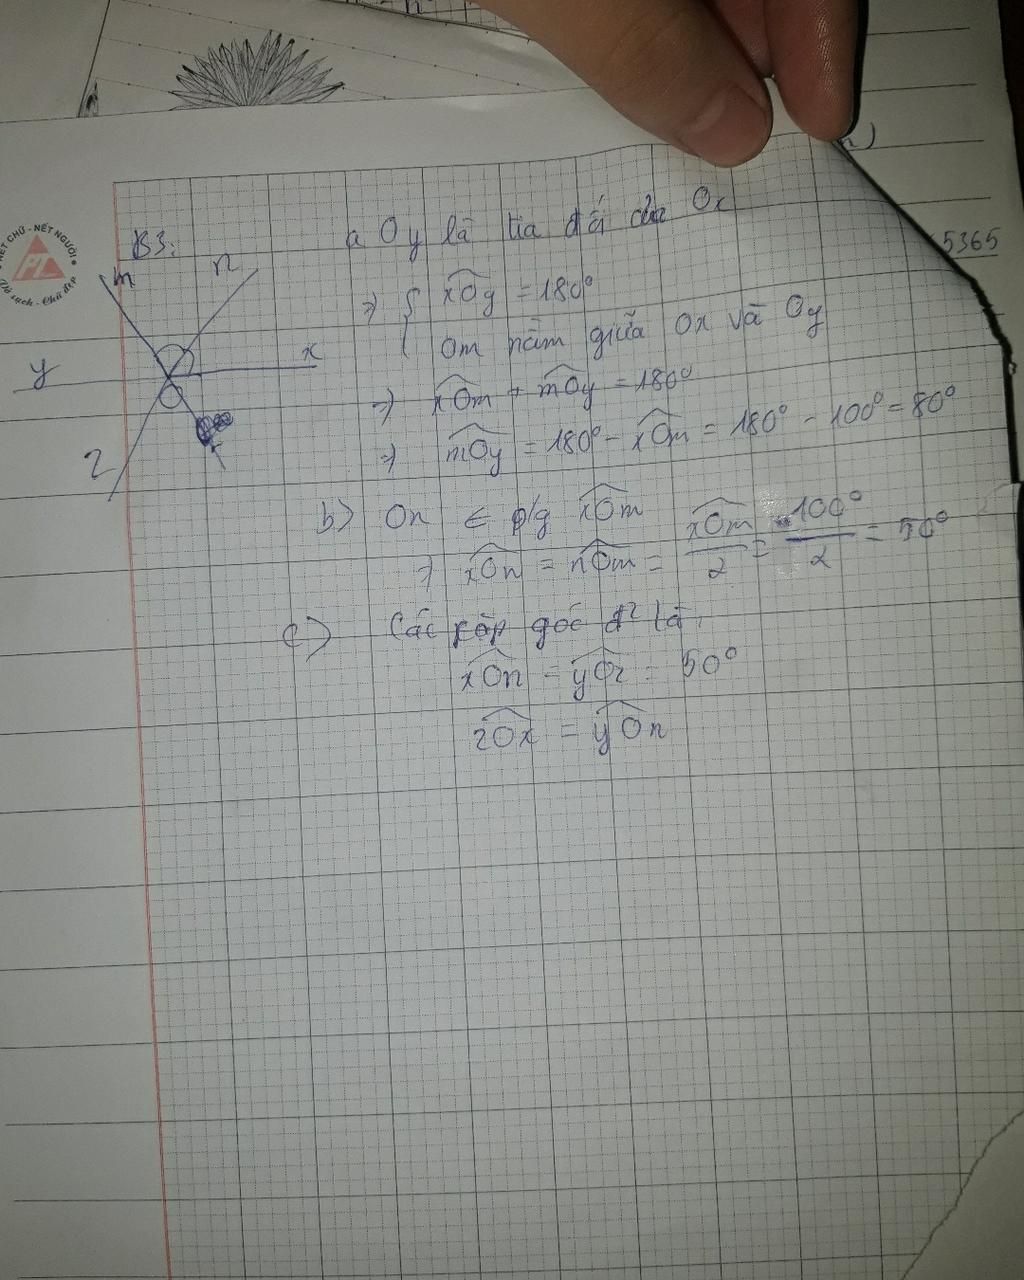 NÉT CHỮ - NẾT NGƯỜI
PT
Vở sạch - Chữ đẹp
5365
B3:
m
n
y
x
z
a Oy là tia đối của Ox
=> { xOy = 180°
Om nằm giữa Ox và Oy
=> xOm + mOy = 180°
=> mOy = 180° - xOm = 180° - 100° = 80°
b) On ∈ p/g xOm
=> xOn = nOm = xOm/2 = 100°/2 = 50°
c) Các cặp góc đ² là
xOn = yOz = 50°
zOx = yOn